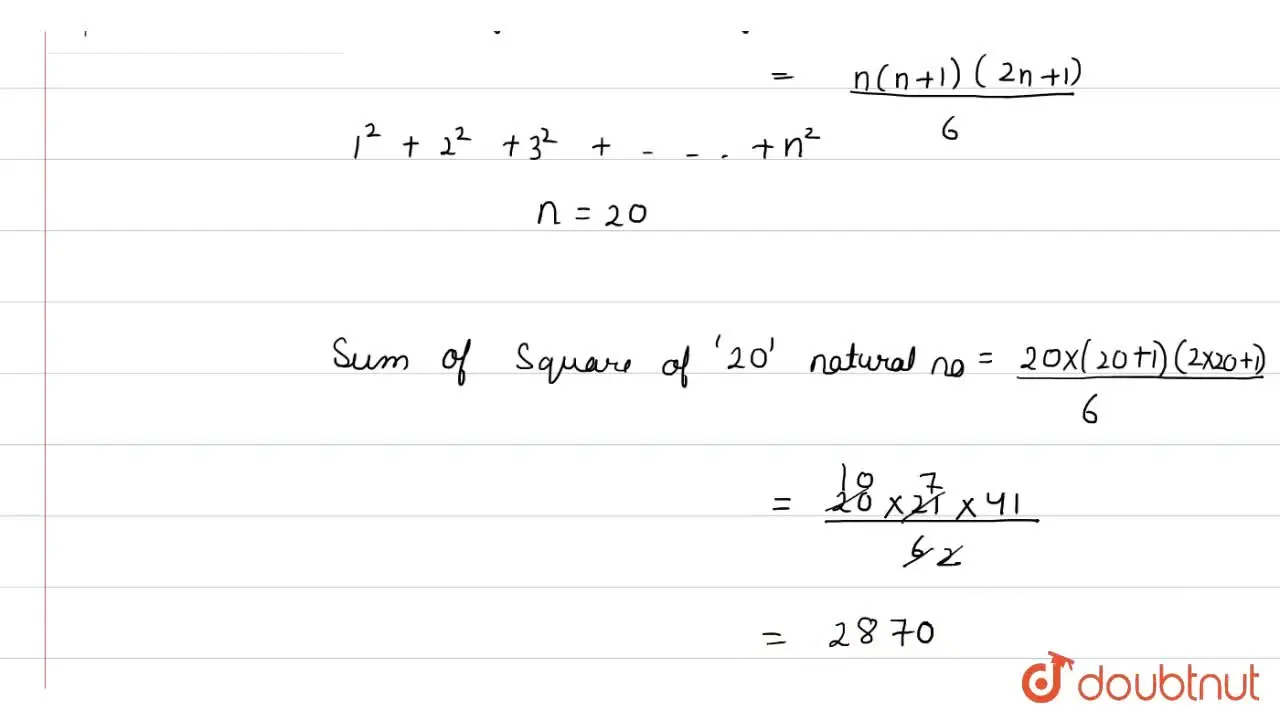 = n(n+1)(2n+1)
6
1² + 2² + 3² + - - . + n²
n = 20
Sum of Square of '20' natural no = 20×(20+1)(2×20+1)
6
10 7
= 20 × 21 × 41
6 2
= 2870
doubtnut